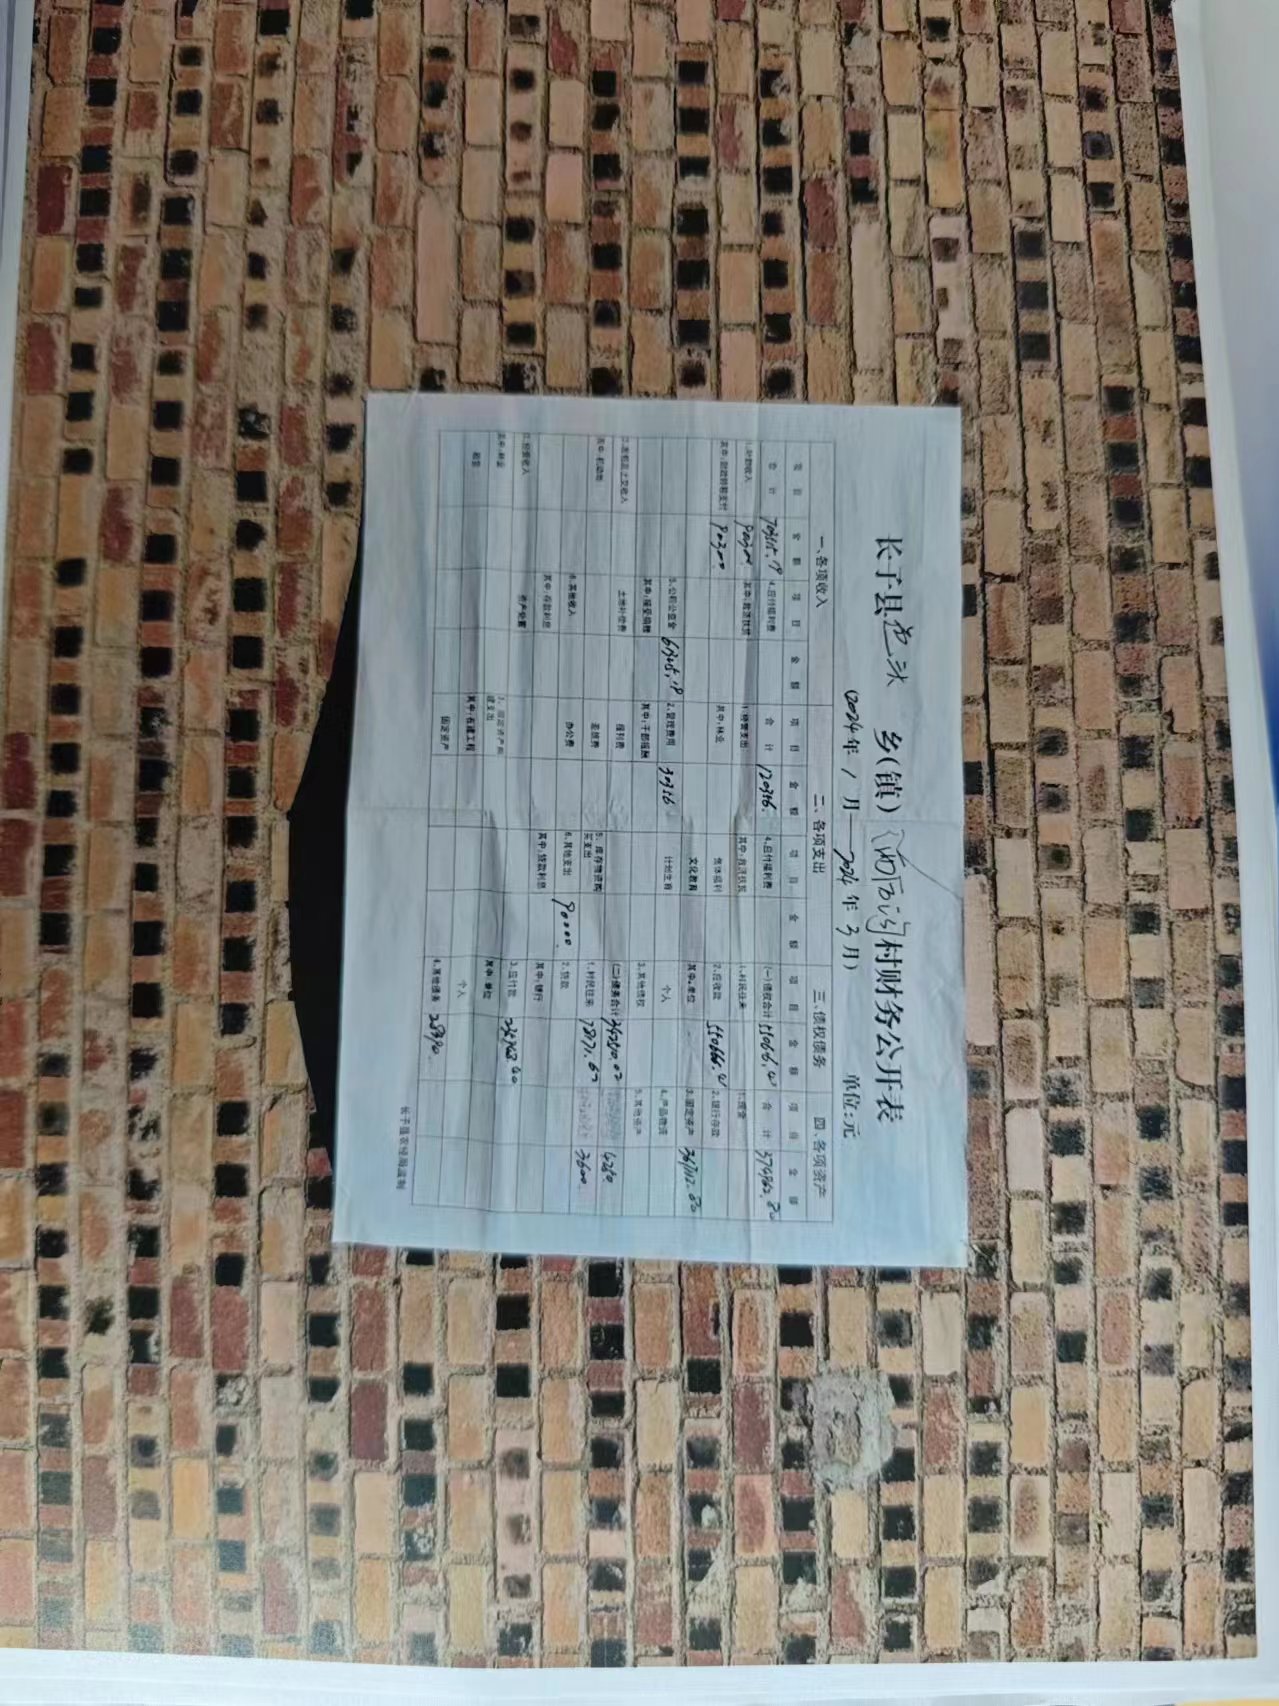 长子县色头 乡(镇) 西石沟村财务公开表
(2024年1月——2024年3月) 单位:元
一、各项收入 二、各项支出 三、债权债务 四、各项资产
项目 金额 项目 金额 项目 金额 项目 金额 项目 金额 项目 金额
合计 4.应付福利费 合计 120316. 4.应付福利费 (一)债权合计 合计 374962.80
1.补助收入 90300 其中:救济扶贫 1.经营支出 其中:救济扶贫 1.村民往来 1.现金
其中:财政转移支付 90300 其中:林业 集体福利 2.应收款 2.银行存款
文化教育 其中:单位 3.固定资产
5.公积公益金 2.管理费用 30316 计划生育 个人 4.产品物资
其中:接受捐赠 其中:干部报酬 3.其他债权 5.其他资产
2.发包及上交收入 土地补偿费 报刊费 5.库存物资购买支出 (二)债务合计 4260
其中:机动地 差旅费 1.村民往来 78171.62 3600
6.其他收入 办公费 6.其他支出 90000 2.贷款
其中:存款利息 其中:贷款利息 其中:银行
3.投资收入 资产处置 3.应付款
其中:林业 3.固定资产购建支出 其中:单位
租赁 其中:在建工程 个人
固定资产 4.其他债务
长子县农经局监制